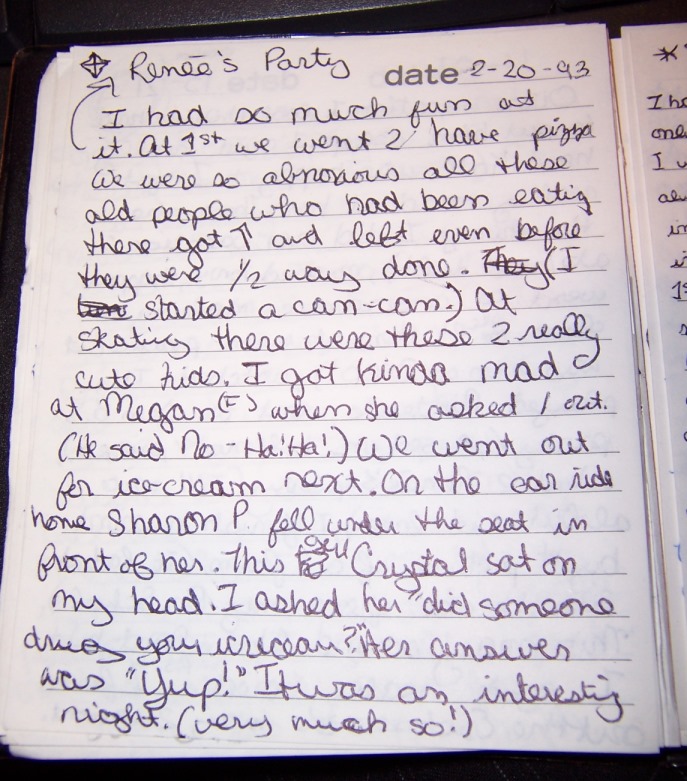 Renée's Party date 2-20-93
I had so much fun at
it. At 1st we went 2 have pizza
We were so abnoxious all these
old people who had been eatig
there got ↑ and left even before
they were 1/2 way done. They (I
started a can-can.) At
skating there were these 2 really
cute kids. I got kinda mad
at Megan (F) when she asked 1 out.
(He said No - Ha! Ha!) We went out
for ice-cream next. On the car ride
home Sharon P. fell under the seat in
front of her. This girl Crystal sat on
my head. I asked her "did someone
drug your icecream?" Her answer
was "Yup!" It was an interestig
night. (very much so!)
*
I ha
one
I w
in
1s